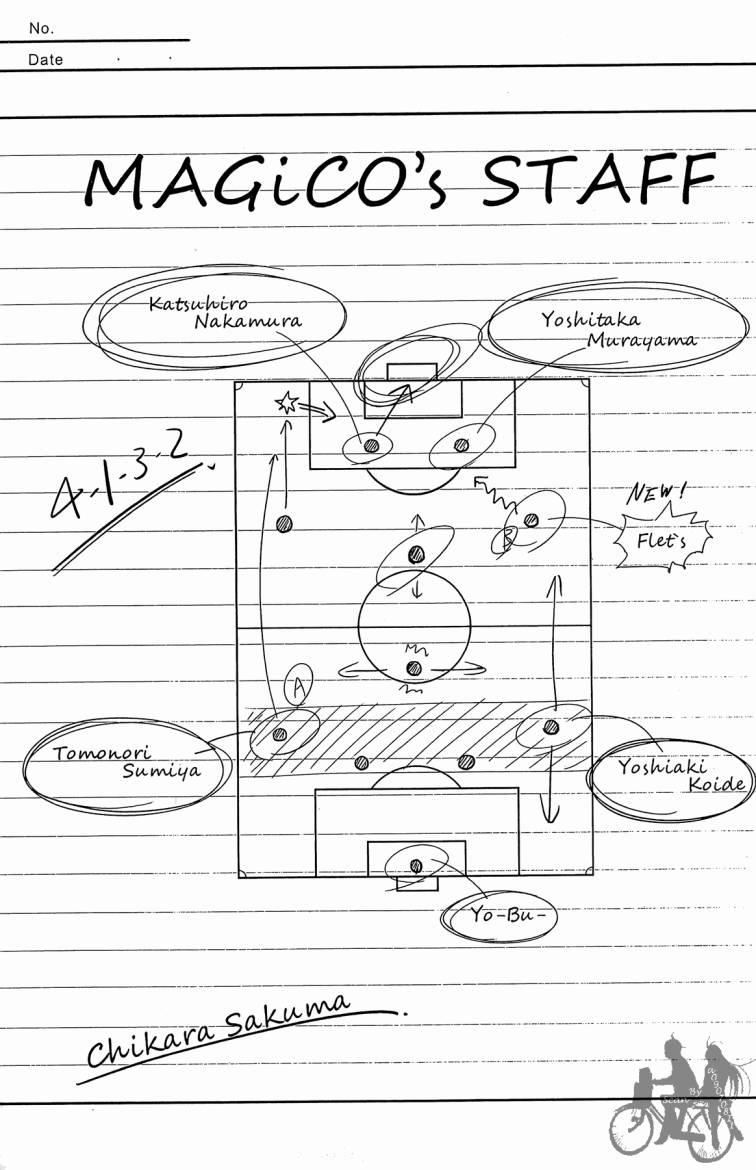 No.
Date
MAGiCO's STAFF
Katsuhiro
Nakamura
Yoshitaka
Murayama
4.1.3.2
NEW!
Flet's
B
A
Tomonori
Sumiya
Yoshiaki
Koide
Yo-Bu-
Chikara Sakuma.
Scan By